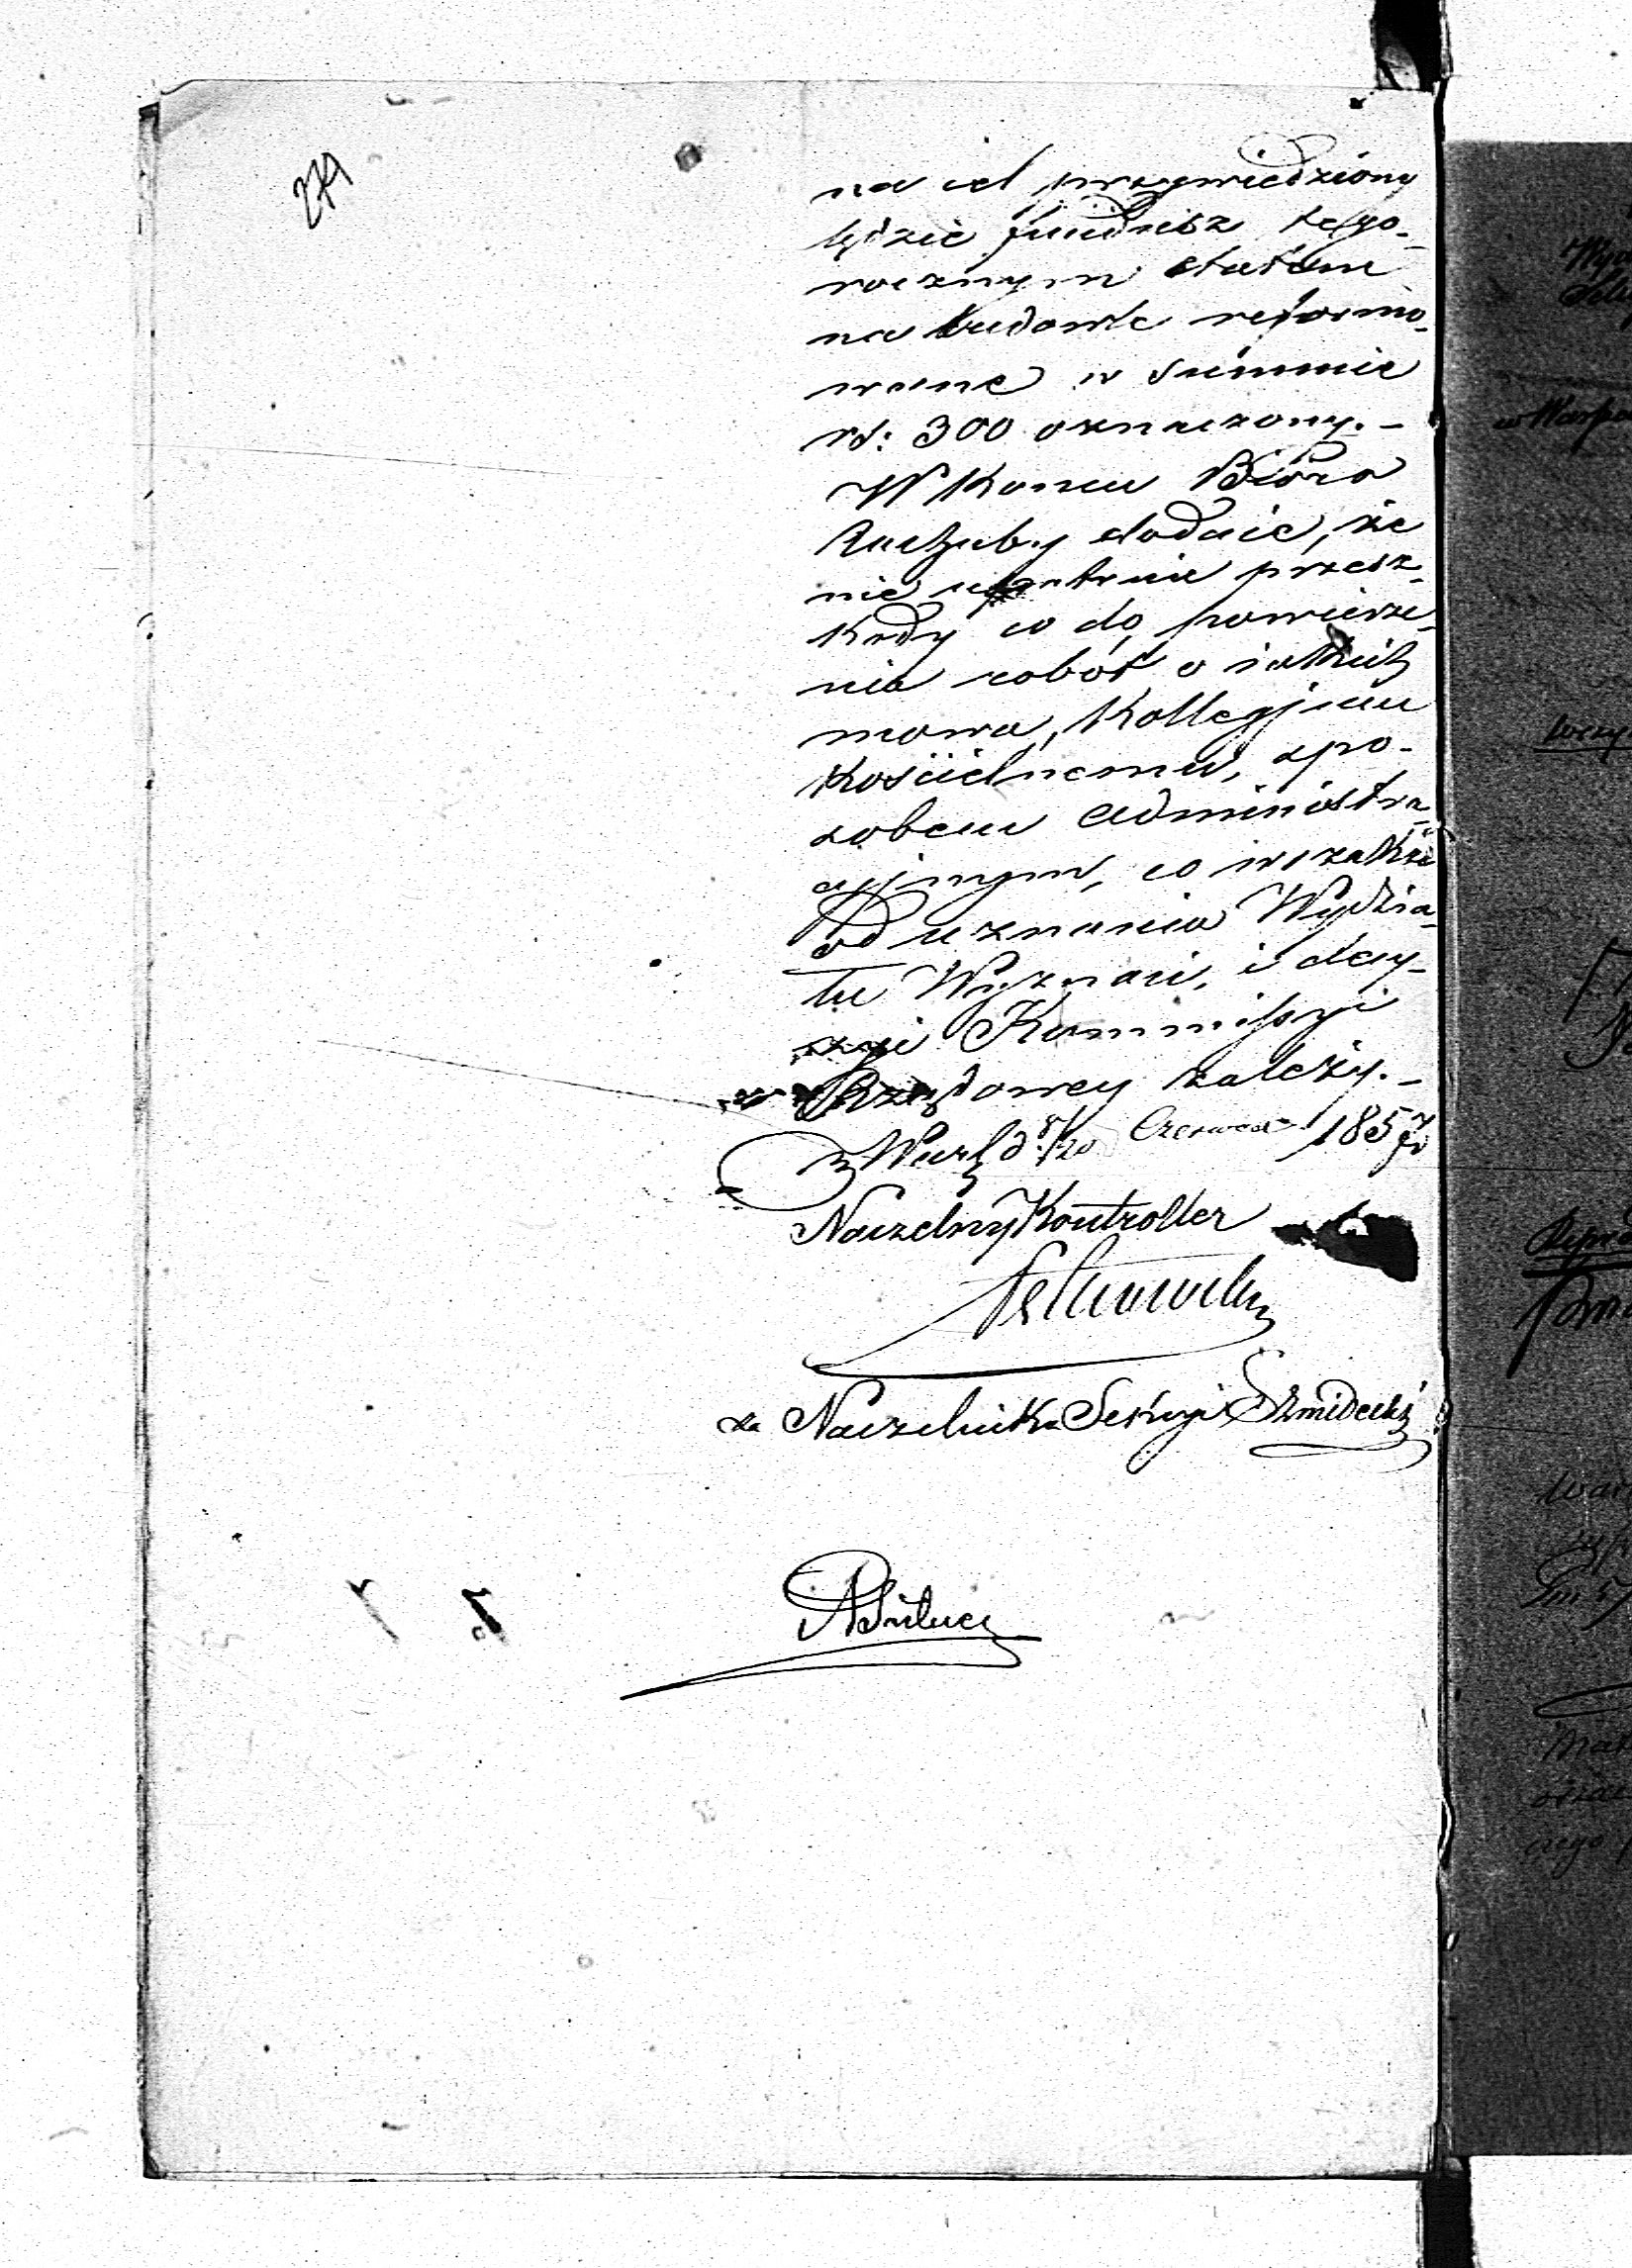 279
na ich przywiedziony
będzie fundusz tego-
rocznym etatem
na budowle reformo-
wane w summie
rs: 300 oznaczony. –
W Koncu Biuro
Rachuby dodaie, że
nie upatruie przesz-
kody co do powierze-
nia robót o iakich
mowa, Kollegjum
Kościelnemu, spo-
sobem administra-
cyjnym, co wszakże
od uznania Wydzia-
łu Wyznań, i decy-
zyi Kommissyi
Rządowey zależy. –
z Warsz. d. 8/20 Czerwca 1857 r.
Naczelny Kontroller
za Naczelnika Sekcyi Szmidecki